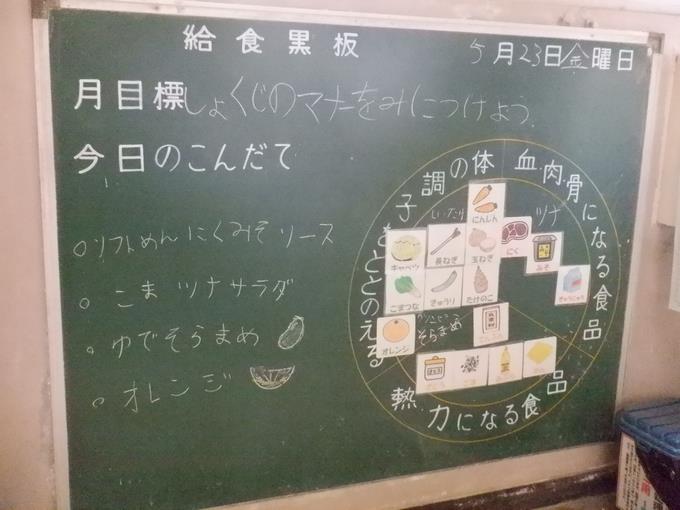 給食黒板
5月23日金曜日
月目標しょくじのマナーをみにつけよう.
今日のこんだて
ソフトめんにくみそソース
ごまツナサラダ
ゆでそらまめ
オレンジ
体の調子をととのえる
血・肉・骨になる食品
熱・力になる食品
ツナ
にんじん
キャベツ
長ねぎ
玉ねぎ
にく
みそ
ぎゅうにゅう
こまつな
きゅうり
たけのこ
オレンジ
そらまめ
でんぷん
さとう
ごま